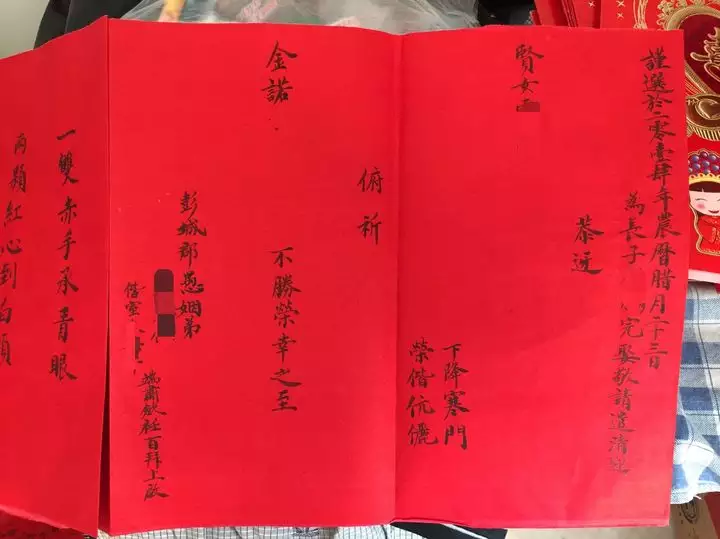 謹選於二零壹肆年農曆腊月二十三日
為長子
完娶敬請遣清
恭迎
賢女
下降寒門
榮偕伉儷
俯祈
金諾
不勝榮幸之至
彭城郡愚姻弟
偕室
端肅敛衽百拜上啟
一雙赤手承青眼
兩顆紅心到白頭